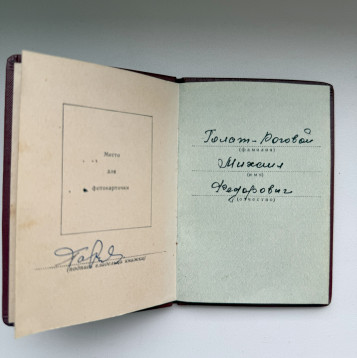 Место
для
фотокарточки
(подпись владельца книжки)
(фамилия)
Михаил
(имя)
Федорович
(отчество)